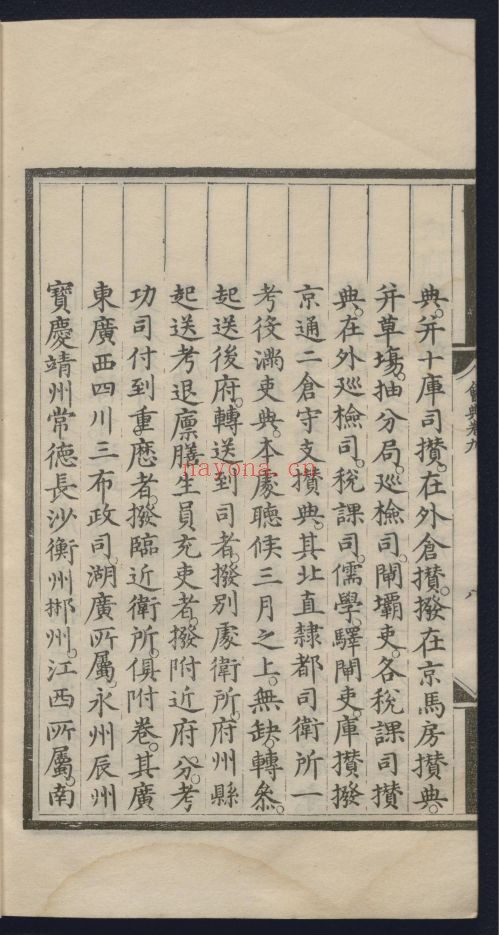 典。并十庫司攅。在外倉攅。撥在京馬房攅典。
并草塲。抽分局。廵檢司。閘壩吏。各稅課司攅
典。在外廵檢司。稅課司。儒學。驛閘吏。庫攅撥
京通二倉守支攅典。其北直隸都司衛所一
考役滿吏典。本處聽候三月之上。無缺。轉叅。
起送後府。轉送到司者。撥別處衛所。府州縣
起送考退廪膳生員充吏者。撥附近府分。考
功司付到重歷者。撥臨近衛所。俱附卷。其廣
東廣西四川三布政司。湖廣所屬。永州辰州
寶慶靖州常德長沙衡州郴州。江西所屬。南
會典卷九
八
nayona.cn